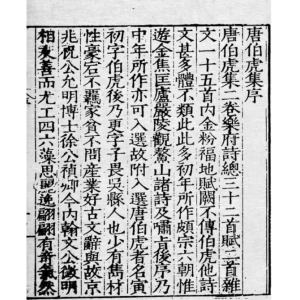 唐伯虎集序
唐伯虎集二卷樂府詩總三十二首賦二首雜
文一十五首內金粉福地賦闕不傳伯虎他詩
文甚多體不類此此多初年所作頗宗六朝惟
遊金焦匡廬嚴陵觀鰲山諸詩及嘯旨後序乃
中年所作亦可入選故附入選唐伯虎者名寅
初字伯虎後乃更字子畏吳縣人也少有雋材
性豪宕不羈家貧不問產業好古文辭與故京
兆祝公允明博士徐公禎卿今內翰文公徵明
相友善而尤工四六藻思麗逸翩翩有奇氣然